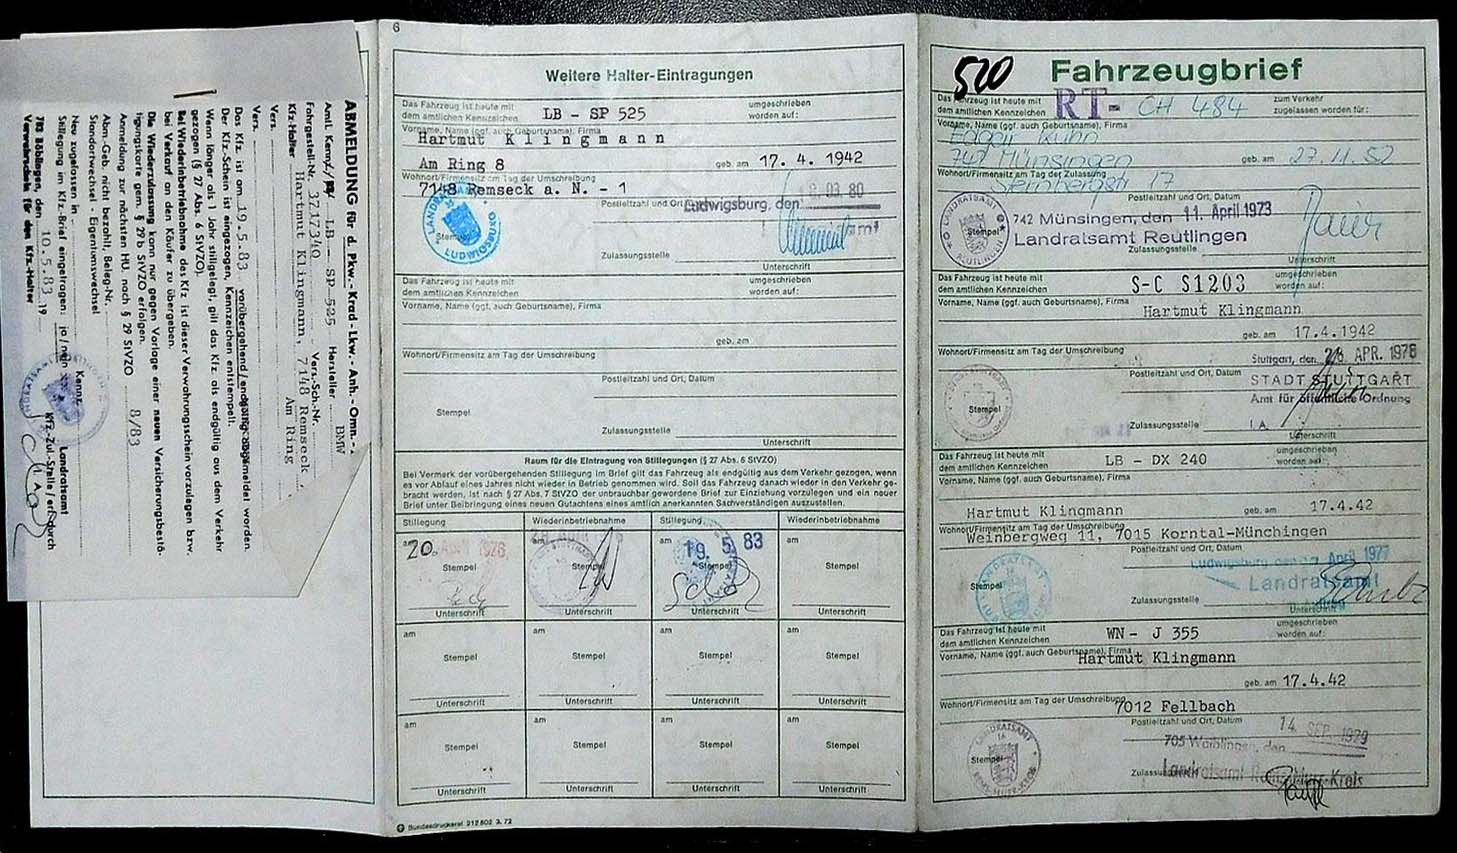 ABMELDUNG für d. Pkw.- Krad - Lkw. - Anh. - Omn. -
Amtl. Kennz. LB - SP 525 Hersteller BMW
Fahrgestell-Nr. 3717340 Vers.-Sch.-Nr.
Kfz-Halter Hartmut Klingmann, 7148 Remseck
Am Ring
Vers.
Vers.
Das Kfz. ist am 19.5.83 vorübergehend/endgültig abgemeldet worden.
Der Kfz.-Schein ist eingezogen, Kennzeichen entstempelt.
Wenn länger als 1 Jahr stillgelegt, gilt das Kfz. als endgültig aus dem Verkehr
gezogen (§ 27 Abs. 6 StVZO).
Bei Wiederinbetriebnahme des Kfz ist dieser Verwahrungsschein vorzulegen bzw.
bei Verkauf an den Käufer zu übergeben.
Die Wiederzulassung kann nur gegen Vorlage einer neuen Versicherungsbestä-
tigungskarte gem. § 29 b StVZO erfolgen.
Anmeldung zur nächsten HU. nach § 29 StVZO 8/83
Abm.-Geb. nicht bezahlt, Beleg-Nr.
Standortwechsel - Eigentumswechsel
Neu zugelassen in Kennz.
Stillegung im Kfz.-Brief eingetragen: ja / nein
703 Böblingen, den 10.5.83 19 Landratsamt
Verwahrschein für den Kfz.-Halter Kfz.-Zul.-Stelle
6
Weitere Halter-Eintragungen
Das Fahrzeug ist heute mit
dem amtlichen Kennzeichen LB - SP 525 umgeschrieben
worden auf:
Vorname, Name (ggf. auch Geburtsname), Firma
Hartmut Klingmann
Am Ring 8 geb. am 17. 4. 1942
Wohnort/Firmensitz am Tag der Umschreibung
7148 Remseck a. N. - 1
Postleitzahl und Ort, Datum
Ludwigsburg, den 03. 80
LANDRATSAMT LUDWIGSBURG
Stempel
Zulassungsstelle
Unterschrift
Das Fahrzeug ist heute mit
dem amtlichen Kennzeichen umgeschrieben
worden auf:
Vorname, Name (ggf. auch Geburtsname), Firma
geb. am
Wohnort/Firmensitz am Tag der Umschreibung
Postleitzahl und Ort, Datum
Stempel
Zulassungsstelle
Unterschrift
Raum für die Eintragung von Stillegungen (§ 27 Abs. 6 StVZO)
Bei Vermerk der vorübergehenden Stillegung im Brief gilt das Fahrzeug als endgültig aus dem Verkehr gezogen, wenn
es vor Ablauf eines Jahres nicht wieder in Betrieb genommen wird. Soll das Fahrzeug danach wieder in den Verkehr ge-
bracht werden, ist nach § 27 Abs. 7 StVZO der unbrauchbar gewordene Brief zur Einziehung vorzulegen und ein neuer
Brief unter Beibringung eines neuen Gutachtens eines amtlich anerkannten Sachverständigen auszustellen.
Stillegung Wiederinbetriebnahme Stillegung Wiederinbetriebnahme
am 20. April 1976 am am 19. 5. 83 am
Stempel Stempel Stempel Stempel
Unterschrift Unterschrift Unterschrift Unterschrift
am am am am
Stempel Stempel Stempel Stempel
Unterschrift Unterschrift Unterschrift Unterschrift
am am am am
Stempel Stempel Stempel Stempel
Unterschrift Unterschrift Unterschrift Unterschrift
Bundesdruckerei 212 802 3. 72
520 Fahrzeugbrief
Das Fahrzeug ist heute mit
dem amtlichen Kennzeichen RT- CH 484 zum Verkehr
zugelassen worden für:
Vorname, Name (ggf. auch Geburtsname), Firma
Edgar Kuhn
742 Münsingen geb. am 27.11.52
Wohnort/Firmensitz am Tag der Zulassung
Sternbergstr 17
Postleitzahl und Ort, Datum
742 Münsingen, den 11. April 1973
Landratsamt Reutlingen
LANDRATSAMT REUTLINGEN
Stempel
Zulassungsstelle
Unterschrift
Das Fahrzeug ist heute mit
dem amtlichen Kennzeichen S-C S1203 umgeschrieben
worden auf:
Vorname, Name (ggf. auch Geburtsname), Firma
Hartmut Klingmann
geb. am 17.4.1942
Wohnort/Firmensitz am Tag der Umschreibung
Stuttgart, den APR. 1976
Postleitzahl und Ort, Datum
STADT STUTTGART
Amt für öffentliche Ordnung
Stempel
Zulassungsstelle I.A.
Unterschrift
Das Fahrzeug ist heute mit
dem amtlichen Kennzeichen LB - DX 240 umgeschrieben
worden auf:
Vorname, Name (ggf. auch Geburtsname), Firma
Hartmut Klingmann geb. am 17.4.42
Wohnort/Firmensitz am Tag der Umschreibung
Weinbergweg 11, 7015 Korntal-Münchingen
Postleitzahl und Ort, Datum
Ludwigsburg, den April 1977
Landratsamt
Stempel
Zulassungsstelle
Unterschrift
Das Fahrzeug ist heute mit
dem amtlichen Kennzeichen WN - J 355 umgeschrieben
worden auf:
Vorname, Name (ggf. auch Geburtsname), Firma
Hartmut Klingmann
geb. am 17.4.42
Wohnort/Firmensitz am Tag der Umschreibung
7012 Fellbach
Postleitzahl und Ort, Datum
14. SEP. 1979
705 Waiblingen, den
LANDRATSAMT REMS-MURR-KREIS
Stempel
Landratsamt Rems-Murr-Kreis